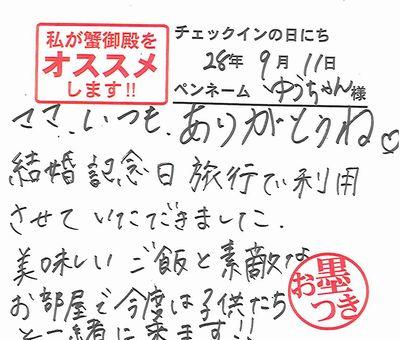 私が蟹御殿を
オススメ
します!!
チェックインの日にち
28年 9月 11日
ペンネーム ゆうちゃん様
ささ、いつも、ありがとうね♡
結婚記念日旅行で利用
させていただきました.
美味しいご飯と素敵な
お部屋で今度は子供たち
と一緒に来ます!!
お墨つき